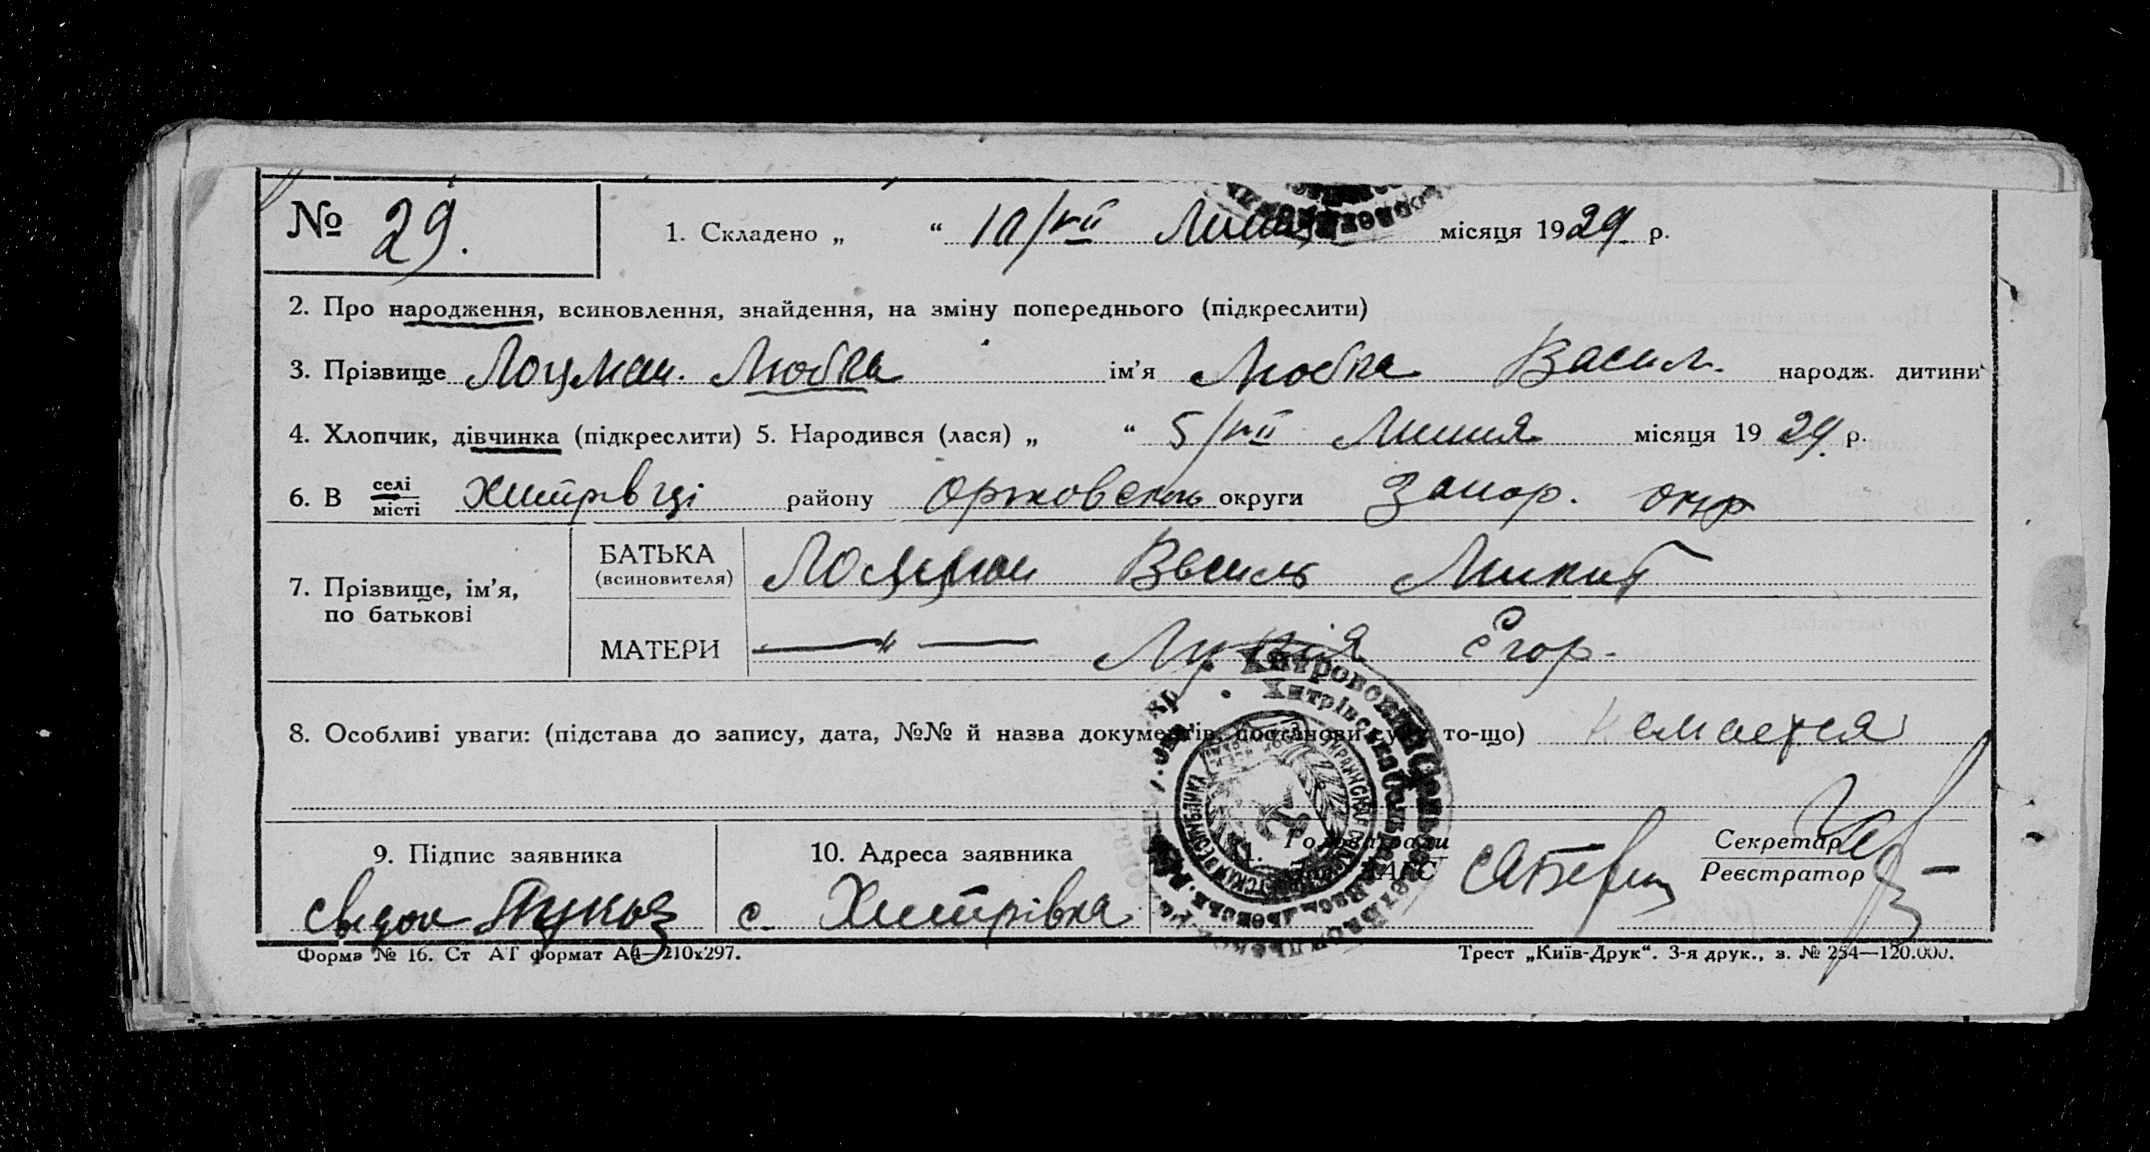 № 29. 1. Складено „ “ 10/VII Липня місяця 1929 р.
2. Про народження, всиновлення, знайдення, на зміну попереднього (підкреслити)
3. Прізвище Лоцман. Любка ім'я Любка Васил. народж. дитини
4. Хлопчик, дівчинка (підкреслити) 5. Народився (лася) „ “ 5/VII Липня місяця 1929. р.
6. В селі місті Хитрівці району Оріховськ округи Запор. окр
7. Прізвище, ім'я, по батькові
БАТЬКА (всиновителя) Лоцман Василь Микит
МАТЕРИ —„— Лукія Єгор.
8. Особливі уваги: (підстава до запису, дата, №№ й назва документів, постанови суду то-що) немается
9. Підпис заявника 10. Адреса заявника 11. Голова ради ЗАГС Секретар Реєстратор
с. Хитрівка
Форма № 16. Ст АГ формат А4—210х297. Трест „Київ-Друк“. 3-я друк., з. № 254—120.000.